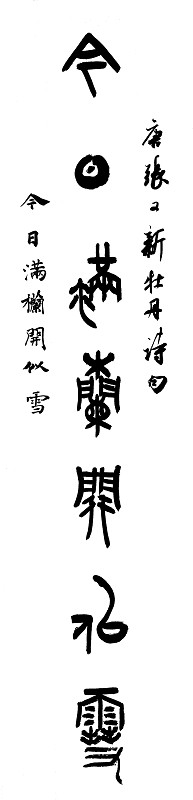 唐張又新牡丹詩句
今日滿欄開似雪
今日滿欄開似雪